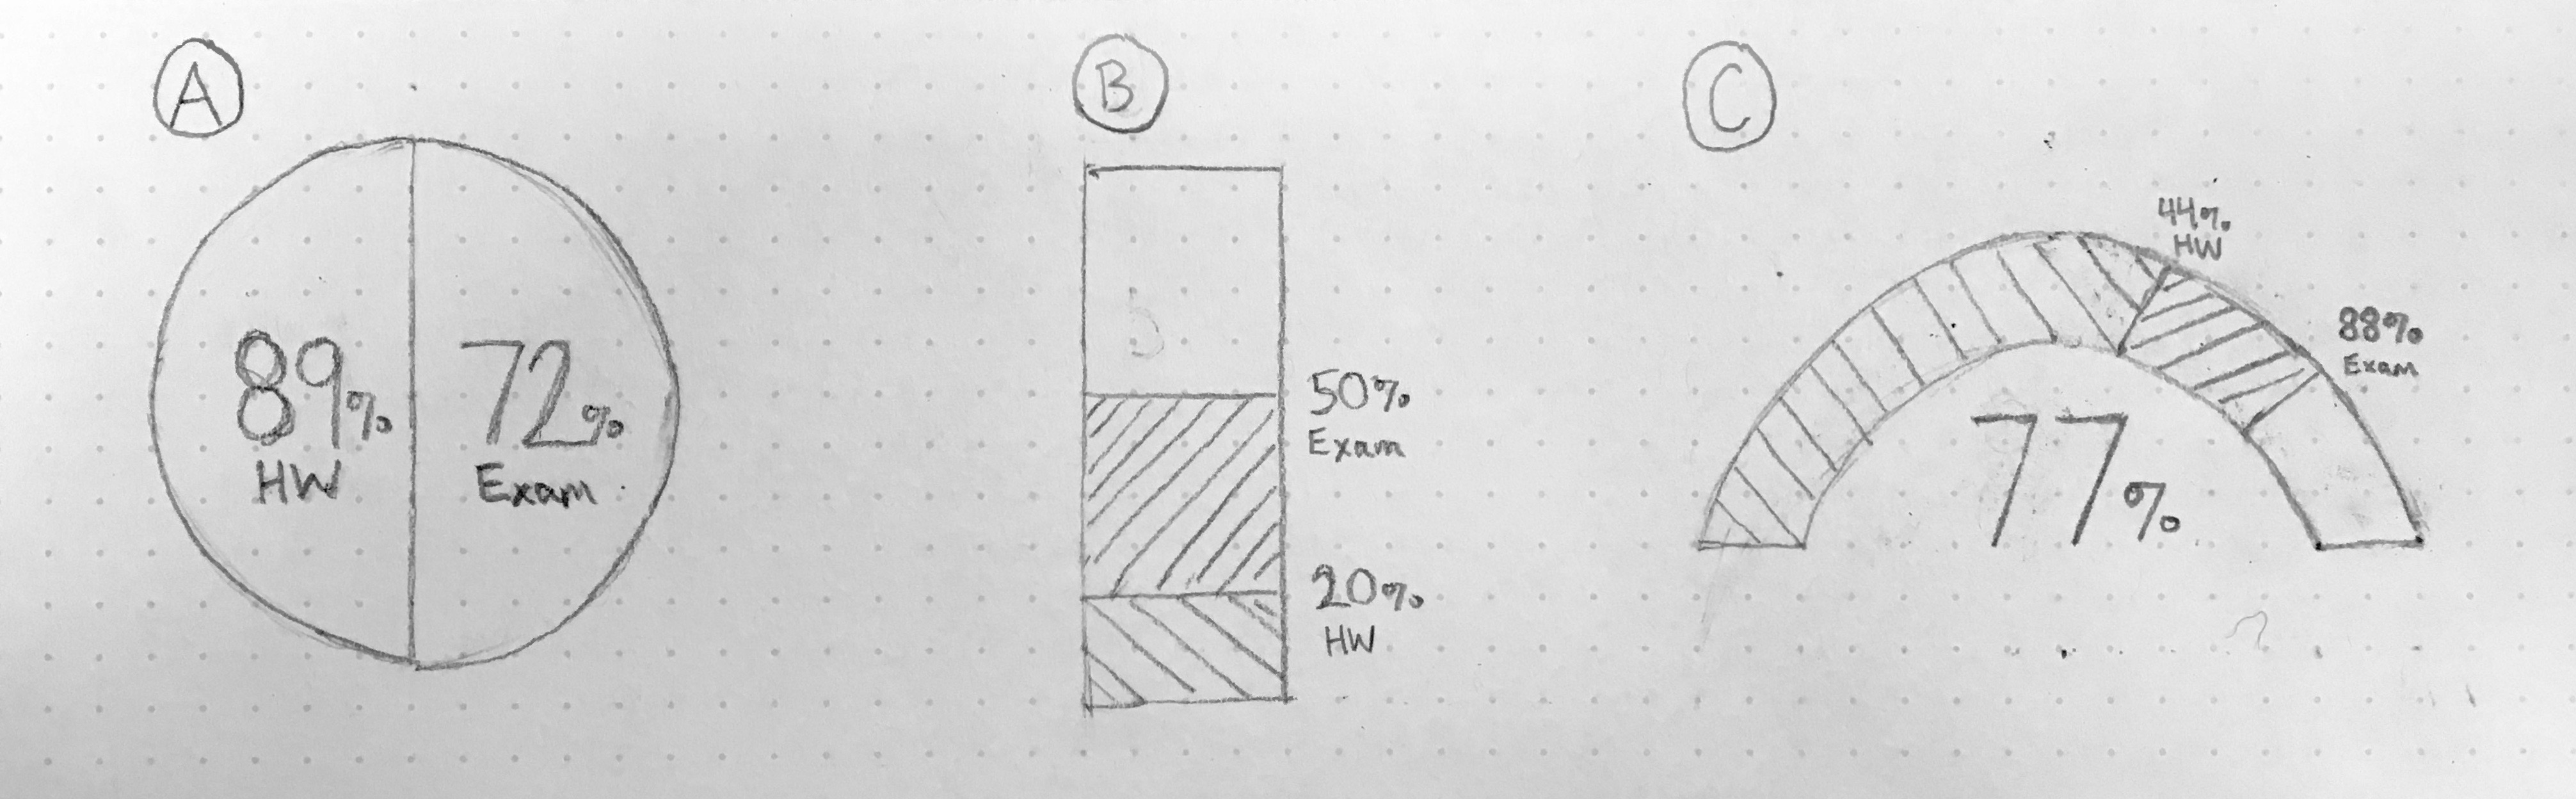 A
89%
HW
72%
Exam
B
50%
Exam
20%
HW
C
44%
HW
88%
Exam
77%